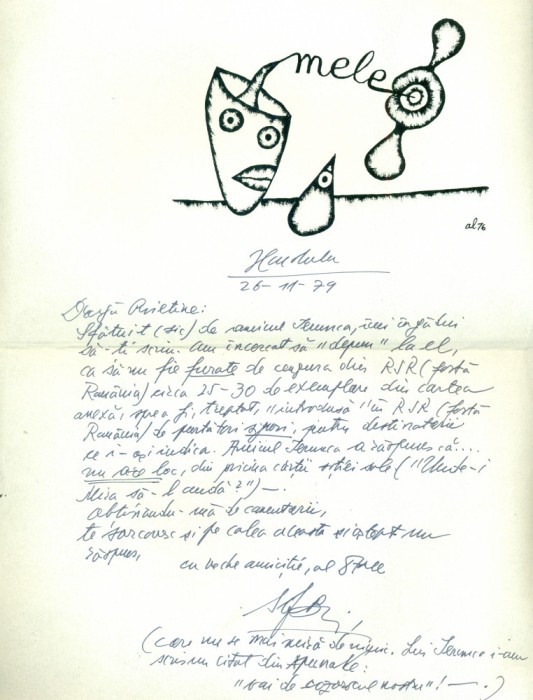 mele
al 76
Honolulu
26-11-79
Dragă Prietine:
Sfătuit (sic) de amicul Ierunca, îmi îngădui
să-ți scriu. Am încercat să "depun" la el,
ca să nu fie furate de cenzura din RSR (fostă
România) circa 25-30 de exemplare din cartea
anexă, spre a fi, treptat, "introdusă" în RSR (fostă
România) de purtători, pentru destinatarii
ce i-aș indica. Amicul Ierunca a răspuns că....
nu are loc, din pricina cărții soției sale ("Unde-i
să-l audă?") —.
abținându-mă de comentarii,
te sorcovesc și pe calea aceasta și aștept un
răspuns,
cu veche amiciție, al Tale
(care nu se mai miră de nimic. Lui Ierunca i-am
scris un citat din
"vai de nostru"! —.)